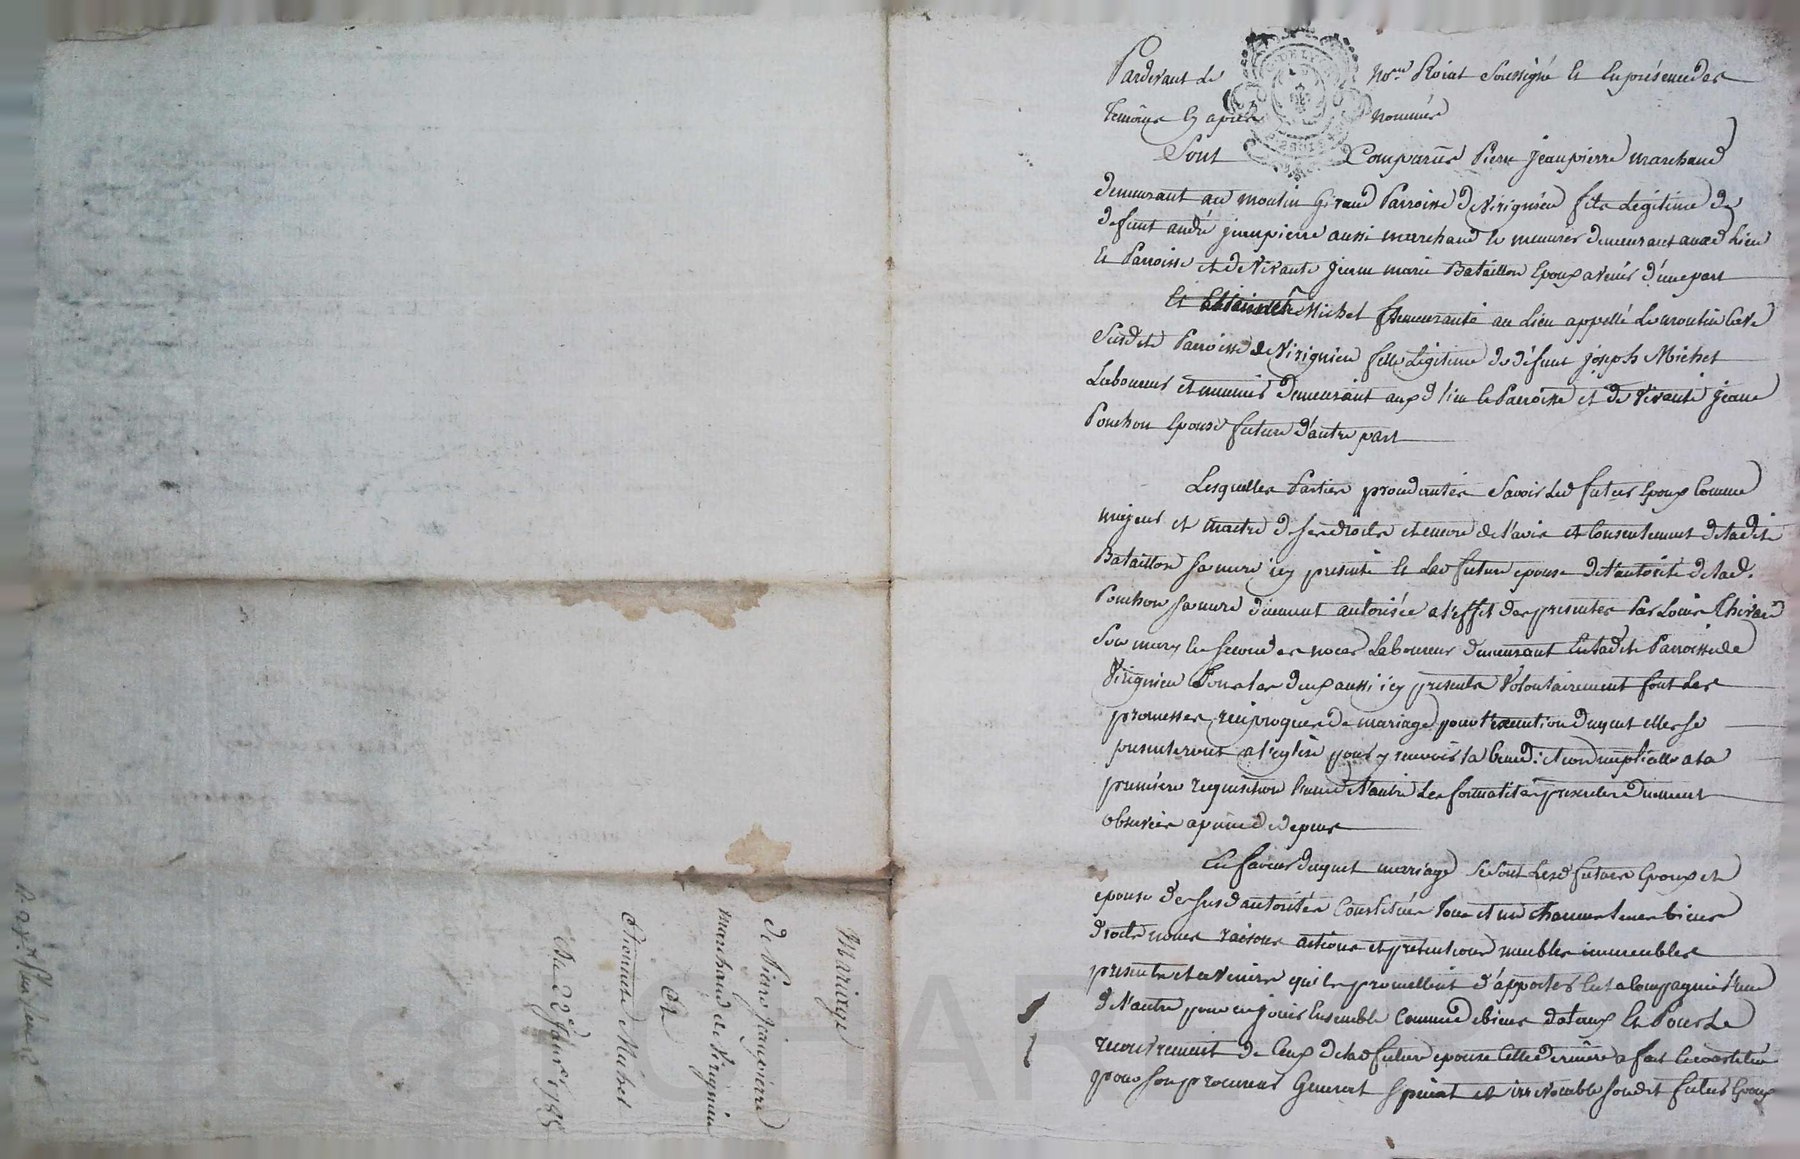 Pardevant Le No.re Roial Soussigné Et En présence des
Temoins Cy après nommés
Sont Comparus Pierre Jeanpierre marchand
demeurant au moulin Giraud Parroisse de Virignieu fils Légitime de
defunt andré jeanpierre aussi marchand le meunier demeurant aud Lieu
Et Parroisse et de Vivante Jeanne marie Bataillon Epoux avenir d'une part
Et Michel demeurante au Lieu appellé Le moulin
Susdite Parroisse de Virignieu fille Légitime de défunt joseph Michel
Laboureur et meunier demeurant aux d lieu et Parroisse et de Vivante Jeanne
Ponchon Epouse future d'autre part
Lesquelles Parties procedantes Savoir Led futur Epoux Comme
majeur et maitre de ses droits et encore de l'avis et Consentement de ladite
Bataillon sa mere icy presente et Lad future epouse de l'autorité de lad.
Ponchon sa mere dument autorisée a l'effet des presentes Par Louis
Son mary En secondes noces Laboureur demeurant En ladite Parroisse de
Virignieu Tous les deux aussi icy presents Volontairement font Les
promesses reciproques de mariage pour l'execution duquel elles se
presenteront a l'eglise pour y recevoir la bened:iction nuptialle a la
premiere requisition l'une de l'autre Les formalités préalables dument
observées a peine de depens
En faveur duquel mariage Se Sont Lesd futurs Epoux et
epouse de susd autorités Constitués Tous et un chacun leurs biens
droits noms raisons actions et prétentions meubles immeubles
presents et avenirs qu'ils promettent d'apporter En la Compagnie l'un
de l'autre pour en jouir Ensemble Comme de biens dotaux Et Pour Le
recouvrement de Ceux de lad future epouse Cette derniere a fait et constitué
pour son procureur General Special et irrevocable son dit futur Epoux
Mariage
de Pierre Jeanpierre
marchand de Virignieu
Et
Etiennette Michel
Du 22e fevrier 1785